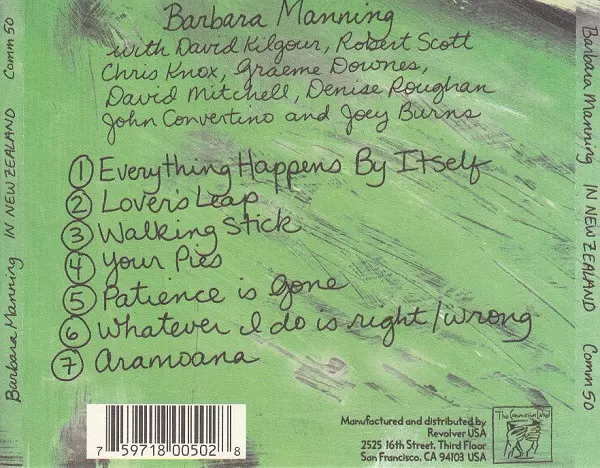 Barbara Manning
with David Kilgour, Robert Scott
Chris Knox, Graeme Downes,
David Mitchell, Denise Roughan
John Convertino and Joey Burns
1 Everything Happens By Itself
2 Lover's Leap
3 Walking Stick
4 Your Pies
5 Patience is gone
6 Whatever I do is right/wrong
7 Aramoana
Barbara Manning IN NEW ZEALAND Comm 50
Barbara Manning IN NEW ZEALAND Comm 50
7 59718 00502 8
Manufactured and distributed by
Revolver USA
2525 16th Street, Third Floor
San Francisco, CA 94103 USA
The Communion Label